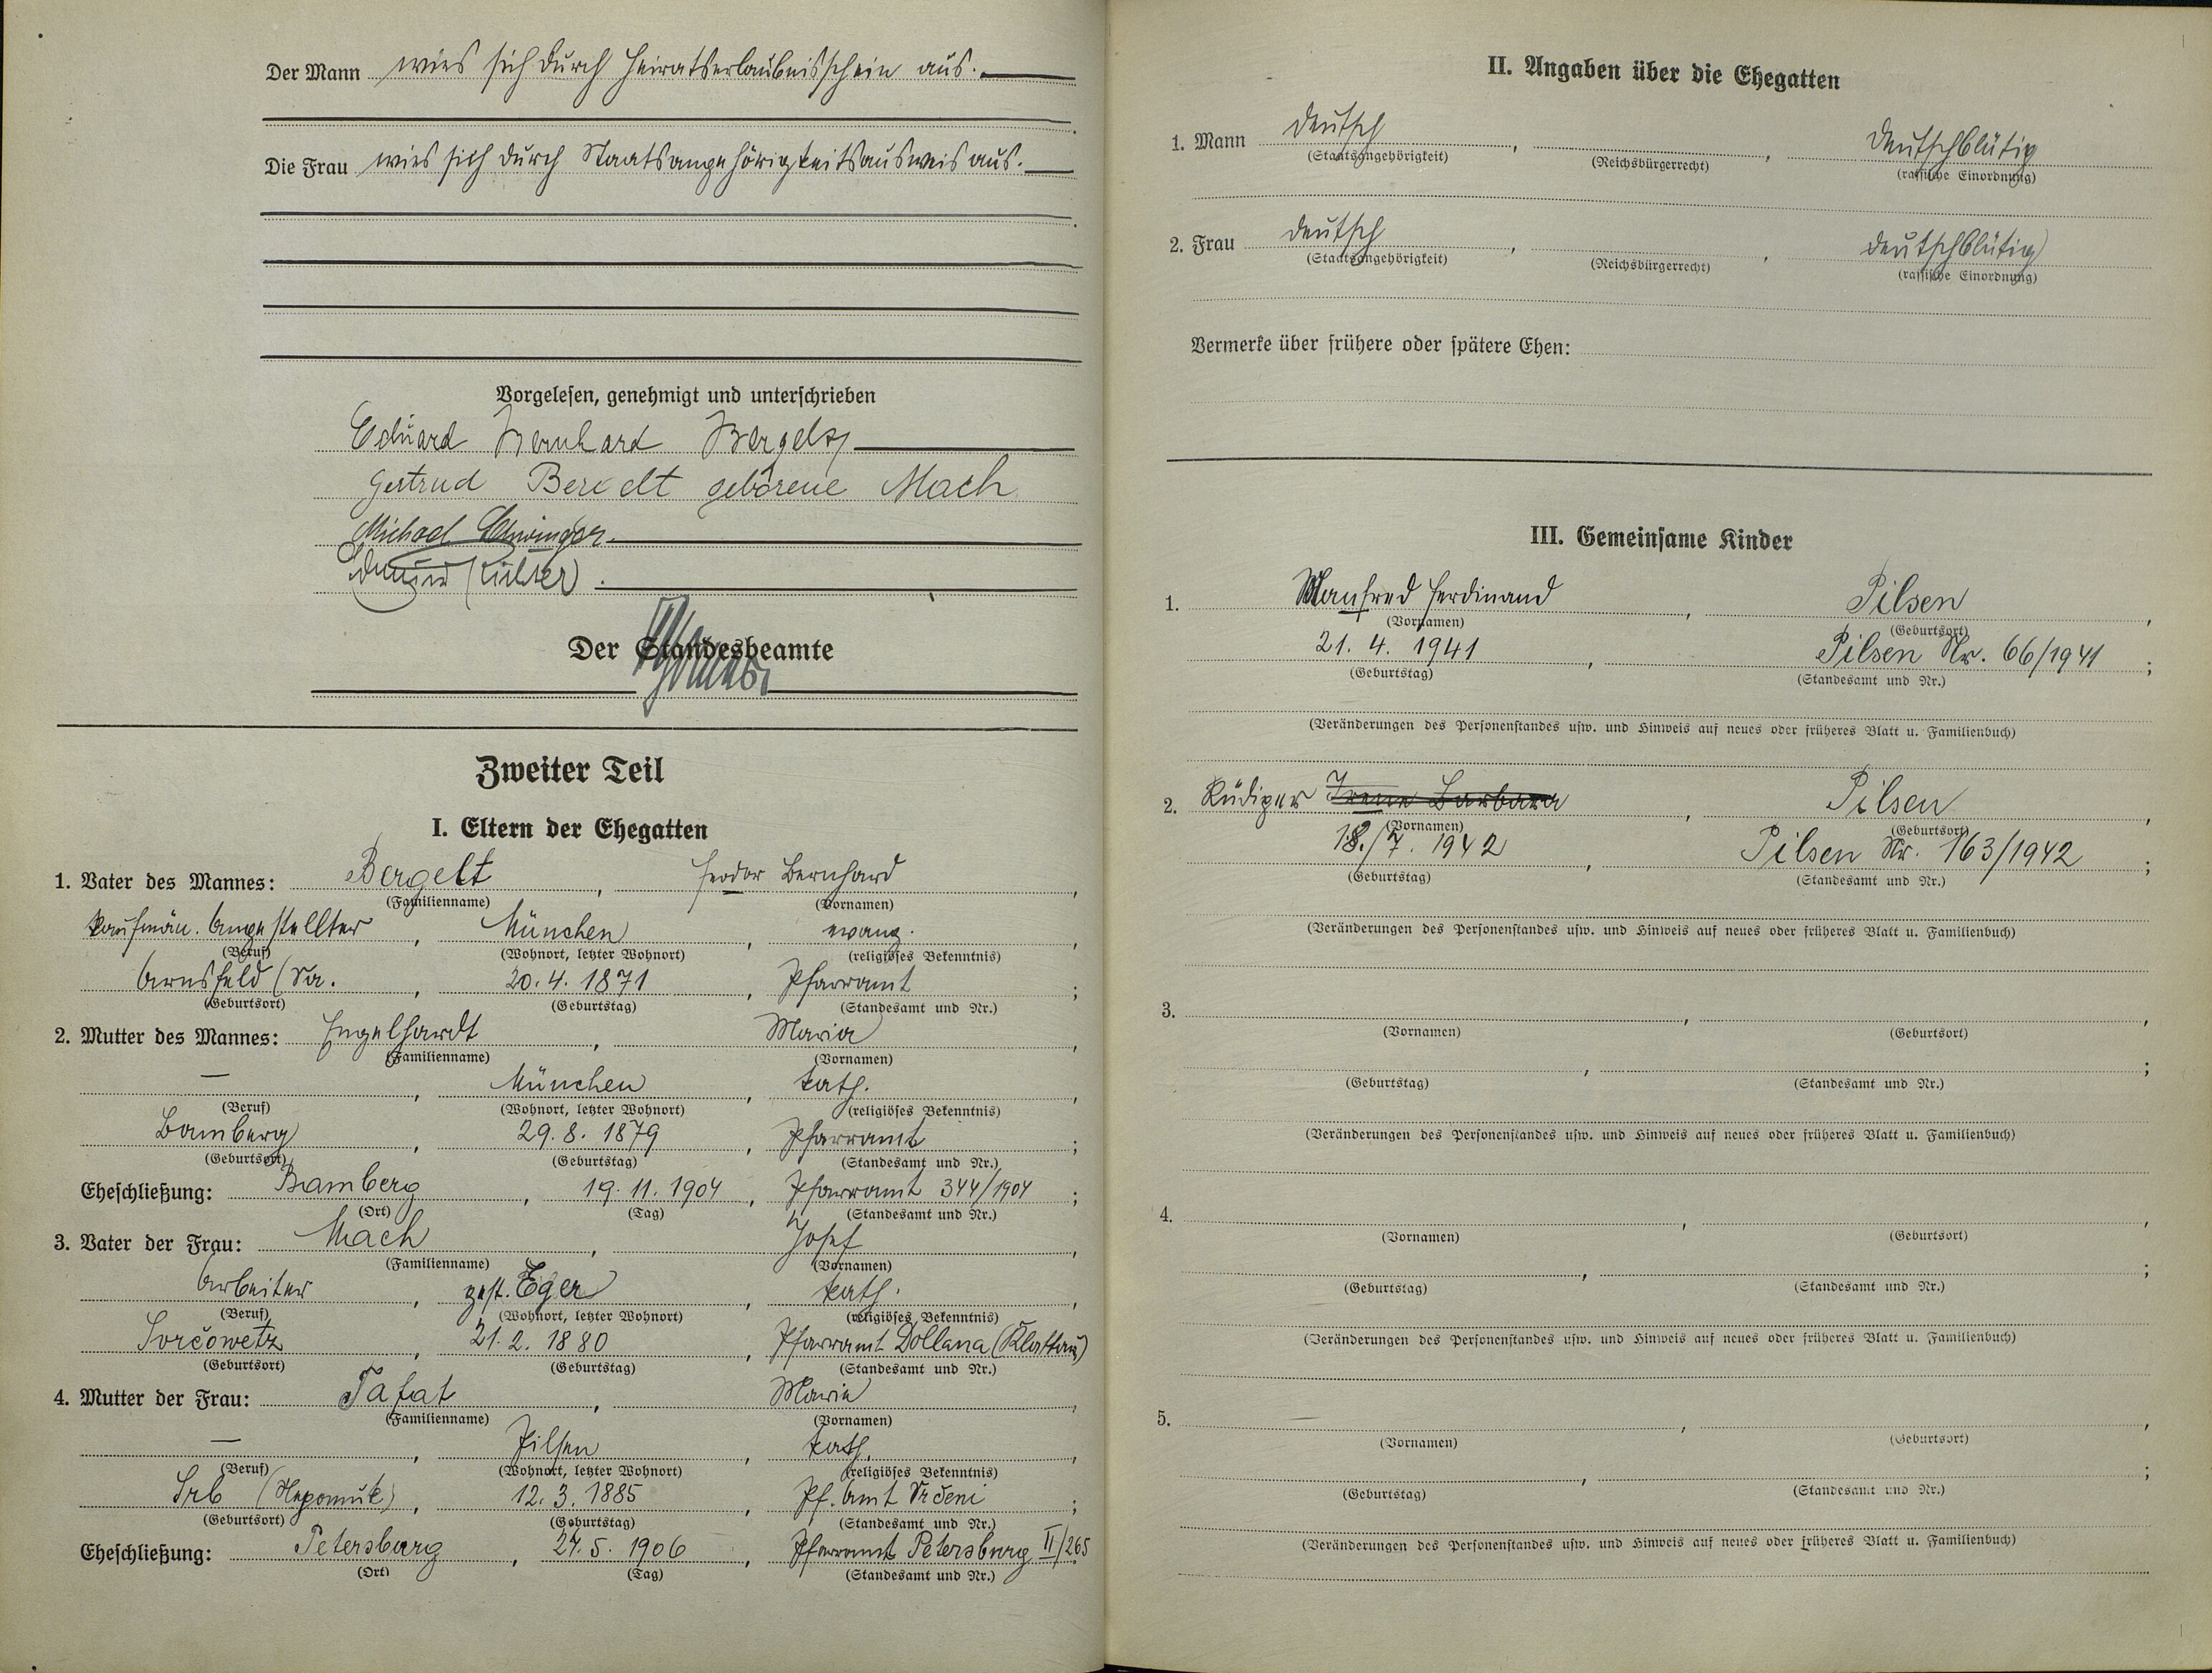 Der Mann wies sich durch Heiratserlaubnisschein aus.
Die Frau wies sich durch Staatsangehörigkeitsausweis aus.
Vorgelesen, genehmigt und unterschrieben
Eduard Bernhard Bergelt
Gertrud Bergelt geborene Mach
Michael
Der Standesbeamte
Zweiter Teil
I. Eltern der Ehegatten
1. Vater des Mannes: Bergelt, Feodor Bernhard,
(Familienname) (Vornamen)
Kaufmän. Angestellter, München, evang.,
(Beruf) (Wohnort, letzter Wohnort) (religiöses Bekenntnis)
Arnsfeld (Sa., 20.4.1871, Pfarramt;
(Geburtsort) (Geburtstag) (Standesamt und Nr.)
2. Mutter des Mannes: Engelhardt, Maria,
(Familienname) (Vornamen)
—, München, kath.,
(Beruf) (Wohnort, letzter Wohnort) (religiöses Bekenntnis)
Bamberg, 29.8.1879, Pfarramt;
(Geburtsort) (Geburtstag) (Standesamt und Nr.)
Eheschließung: Bamberg, 19.11.1904, Pfarramt 344/1904;
(Ort) (Tag) (Standesamt und Nr.)
3. Vater der Frau: Mach, Josef,
(Familienname) (Vornamen)
Arbeiter, gest. Eger, kath.,
(Beruf) (Wohnort, letzter Wohnort) (religiöses Bekenntnis)
21.2.1880, Pfarramt Dollana (Klattau)
(Geburtsort) (Geburtstag) (Standesamt und Nr.)
4. Mutter der Frau: Maria,
(Familienname) (Vornamen)
—, Pilsen, kath.,
(Beruf) (Wohnort, letzter Wohnort) (religiöses Bekenntnis)
Srb (Nepomuk), 12.3.1885, Pf. Amt Vrčeni;
(Geburtsort) (Geburtstag) (Standesamt und Nr.)
Eheschließung: Petersburg, 27.5.1906, Pfarramt Petersburg II/265;
(Ort) (Tag) (Standesamt und Nr.)
II. Angaben über die Ehegatten
1. Mann deutsch, , deutschblütig
(Staatsangehörigkeit) (Reichsbürgerrecht) (rassische Einordnung)
2. Frau deutsch, , deutschblütig
(Staatsangehörigkeit) (Reichsbürgerrecht) (rassische Einordnung)
Vermerke über frühere oder spätere Ehen:
III. Gemeinsame Kinder
1. Manfred Ferdinand, Pilsen,
(Vornamen) (Geburtsort)
21.4.1941, Pilsen Nr. 66/1941;
(Geburtstag) (Standesamt und Nr.)
(Veränderungen des Personenstandes usw. und Hinweis auf neues oder früheres Blatt u. Familienbuch)
2. Rüdiger Irene Barbara, Pilsen,
(Vornamen) (Geburtsort)
18./7.1942, Pilsen Nr. 163/1942;
(Geburtstag) (Standesamt und Nr.)
(Veränderungen des Personenstandes usw. und Hinweis auf neues oder früheres Blatt u. Familienbuch)
3. , ,
(Vornamen) (Geburtsort)
, ;
(Geburtstag) (Standesamt und Nr.)
(Veränderungen des Personenstandes usw. und Hinweis auf neues oder früheres Blatt u. Familienbuch)
4. , ,
(Vornamen) (Geburtsort)
, ;
(Geburtstag) (Standesamt und Nr.)
(Veränderungen des Personenstandes usw. und Hinweis auf neues oder früheres Blatt u. Familienbuch)
5. , ,
(Vornamen) (Geburtsort)
, ;
(Geburtstag) (Standesamt und Nr.)
(Veränderungen des Personenstandes usw. und Hinweis auf neues oder früheres Blatt u. Familienbuch)